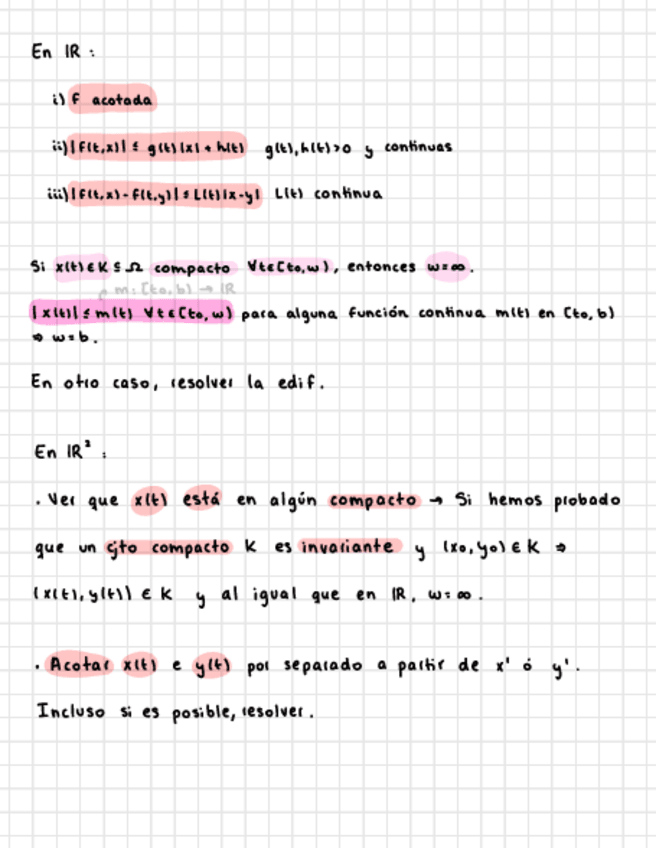 En IR :
i) f acotada
ii) |f(t,x)| ≤ g(t)|x| + h(t) g(t), h(t)>0 y continuas
iii) |f(t,x)-f(t,y)| ≤ L(t)|x-y| L(t) continua
Si x(t) ∈ K ⊆ Ω compacto ∀t∈[t0,w), entonces w=∞.
m: [t0,b) → IR
|x(t)| ≤ m(t) ∀t∈[t0,w) para alguna función continua m(t) en [t0,b)
⇒ w=b.
En otro caso, resolver la edif.
En IR² :
. Ver que x(t) está en algún compacto → Si hemos probado
que un cjto compacto K es invariante y (x0,y0) ∈ K ⇒
(x(t),y(t)) ∈ K y al igual que en IR, w=∞.
. Acotar x(t) e y(t) por separado a partir de x' ó y'.
Incluso si es posible, resolver.